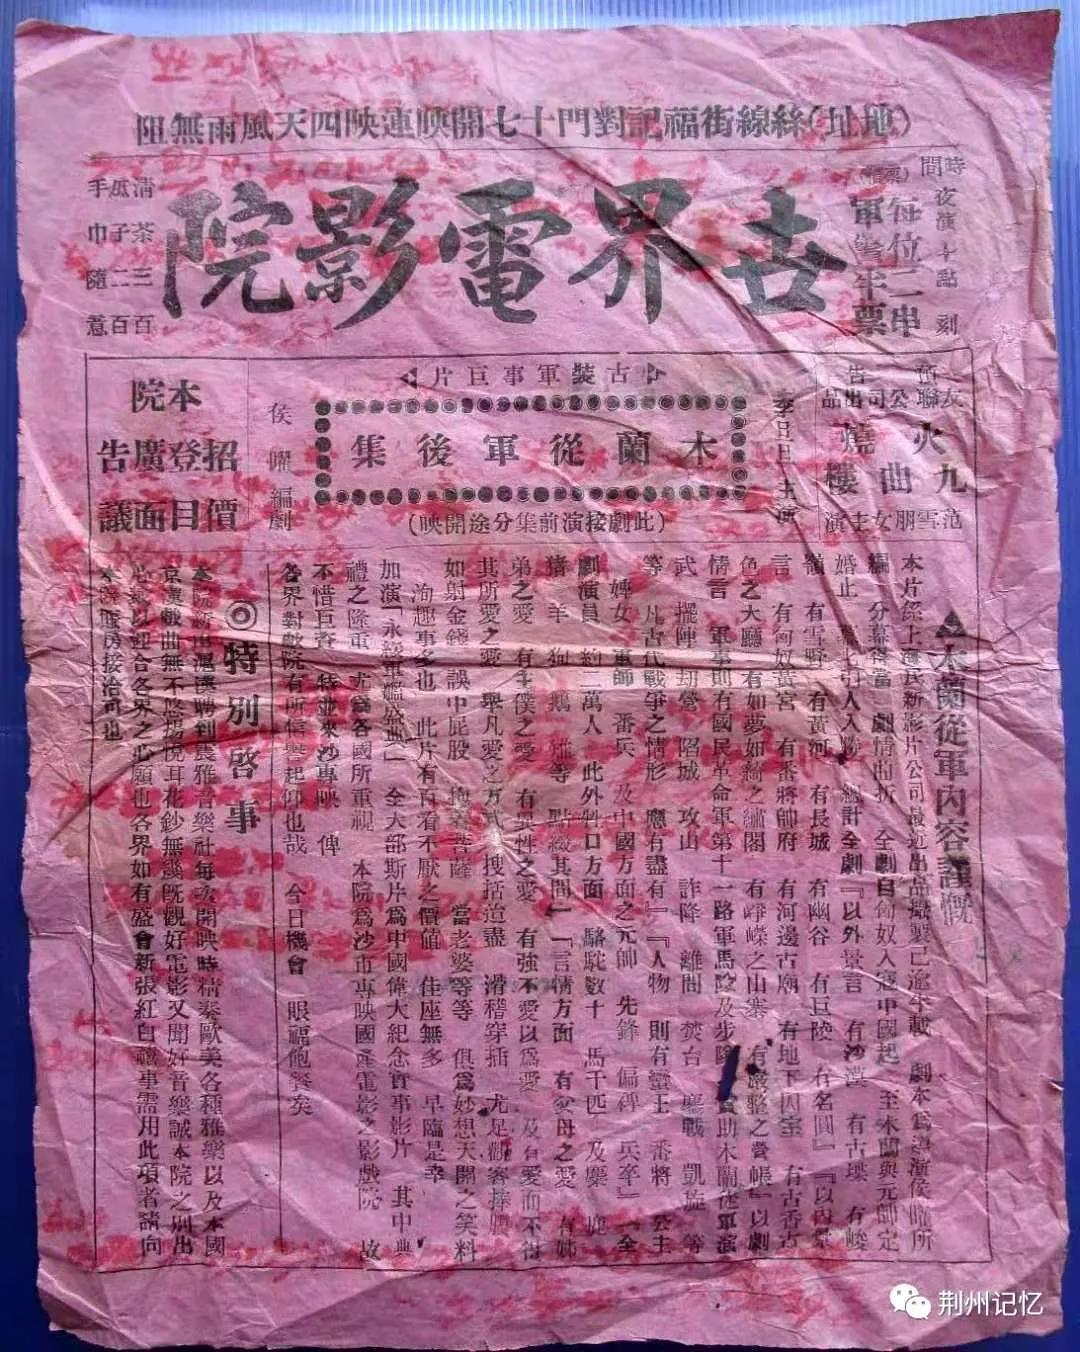 (地址)絲線街福記對門十七開映連映四天風雨無阻
時間
夜演十點
刻
(票價)每位二串
軍警半票
世界電影院
清茶三百
瓜子二百
手巾隨意
預告
友聯公司出品
火燒
九曲樓
范雪朋女士主演
李旦旦主演
古裝軍事巨片
木蘭從軍後集
(此劇接演前集分途開映)
侯曜編劇
本院
招登廣告
價目面議
▲木蘭從軍內容謹慨
本片係上海民新影片公司最近出品擬製已逾半載 劇本爲導演侯曜所
編 分幕得當 劇情曲折 全劇自匈奴入寇中國起 至木蘭與元帥定
婚止 引人入勝 經計全劇『以外景言 有沙漠 有古堞 有峻
嶺 有雪野 有黃河 有長城 有幽谷 有巨陵 有名園』『以內景
言 有匈奴黃宮 有番將帥府 有河邊古廟 有地下囚室 有古香古
色之大廳 有如夢如綺之繡閣 有崢嶸之山寨 有嚴整之營帳』以劇
情言 軍事則有國民革命軍第十一路軍馬隊及步隊 贊助木蘭從軍演
武 擺陣 刧營 陷城 攻山 詐降 離間 焚台 鏖戰 凱旋 等
等 凡古代戰爭之情形 應有盡有』『人物 則有蠻王 番將 公主
婢女 軍師 番兵 及中國方面之元帥 先鋒 偏碑 兵卒』『全
劇演員 約二萬人 此外牲口方面 駱駝數十 馬千匹 及麋 鹿
猪 羊 狗 鵝 雞等 點綴其間』『言情方面 有父母之愛 有姊
弟之愛 有主僕之愛 有異性之愛 有強不愛以爲愛 及有愛而不得
其所愛之愛 舉凡愛之方式 搜括造盡 滑稽穿插 尤足觀客捧腹
如射金錢 誤中屁股 抱着菩薩 當老婆等等 俱爲妙想天開之笑料
洵趣事多也 此片有百看不厭之價值 佳座無多 早臨是幸
加演「永綏軍艦盛典」 全大部斯片爲中國偉大紀念實事影片 其中典
禮之隆重 尤爲各國所重視 本院爲沙市專映國產電影之影戲院 故
不惜巨資 特進來沙專映 俾
各界對敝院有所信譽起仰也哉 今日機會 眼福飽餐矣
◎特別啓事
本院新由漢聘到長雅音樂社每次開映時精奏歐美各種雅樂以及本國
京漢戲曲無不悠揚悅耳花鈔無幾旣觀好電影又聞好音樂誠本院之別出
心裁以迎合各界之心願也各界如有盛會新張紅白禮事需用此項者請向
本院賬房接洽可也
荆州记忆